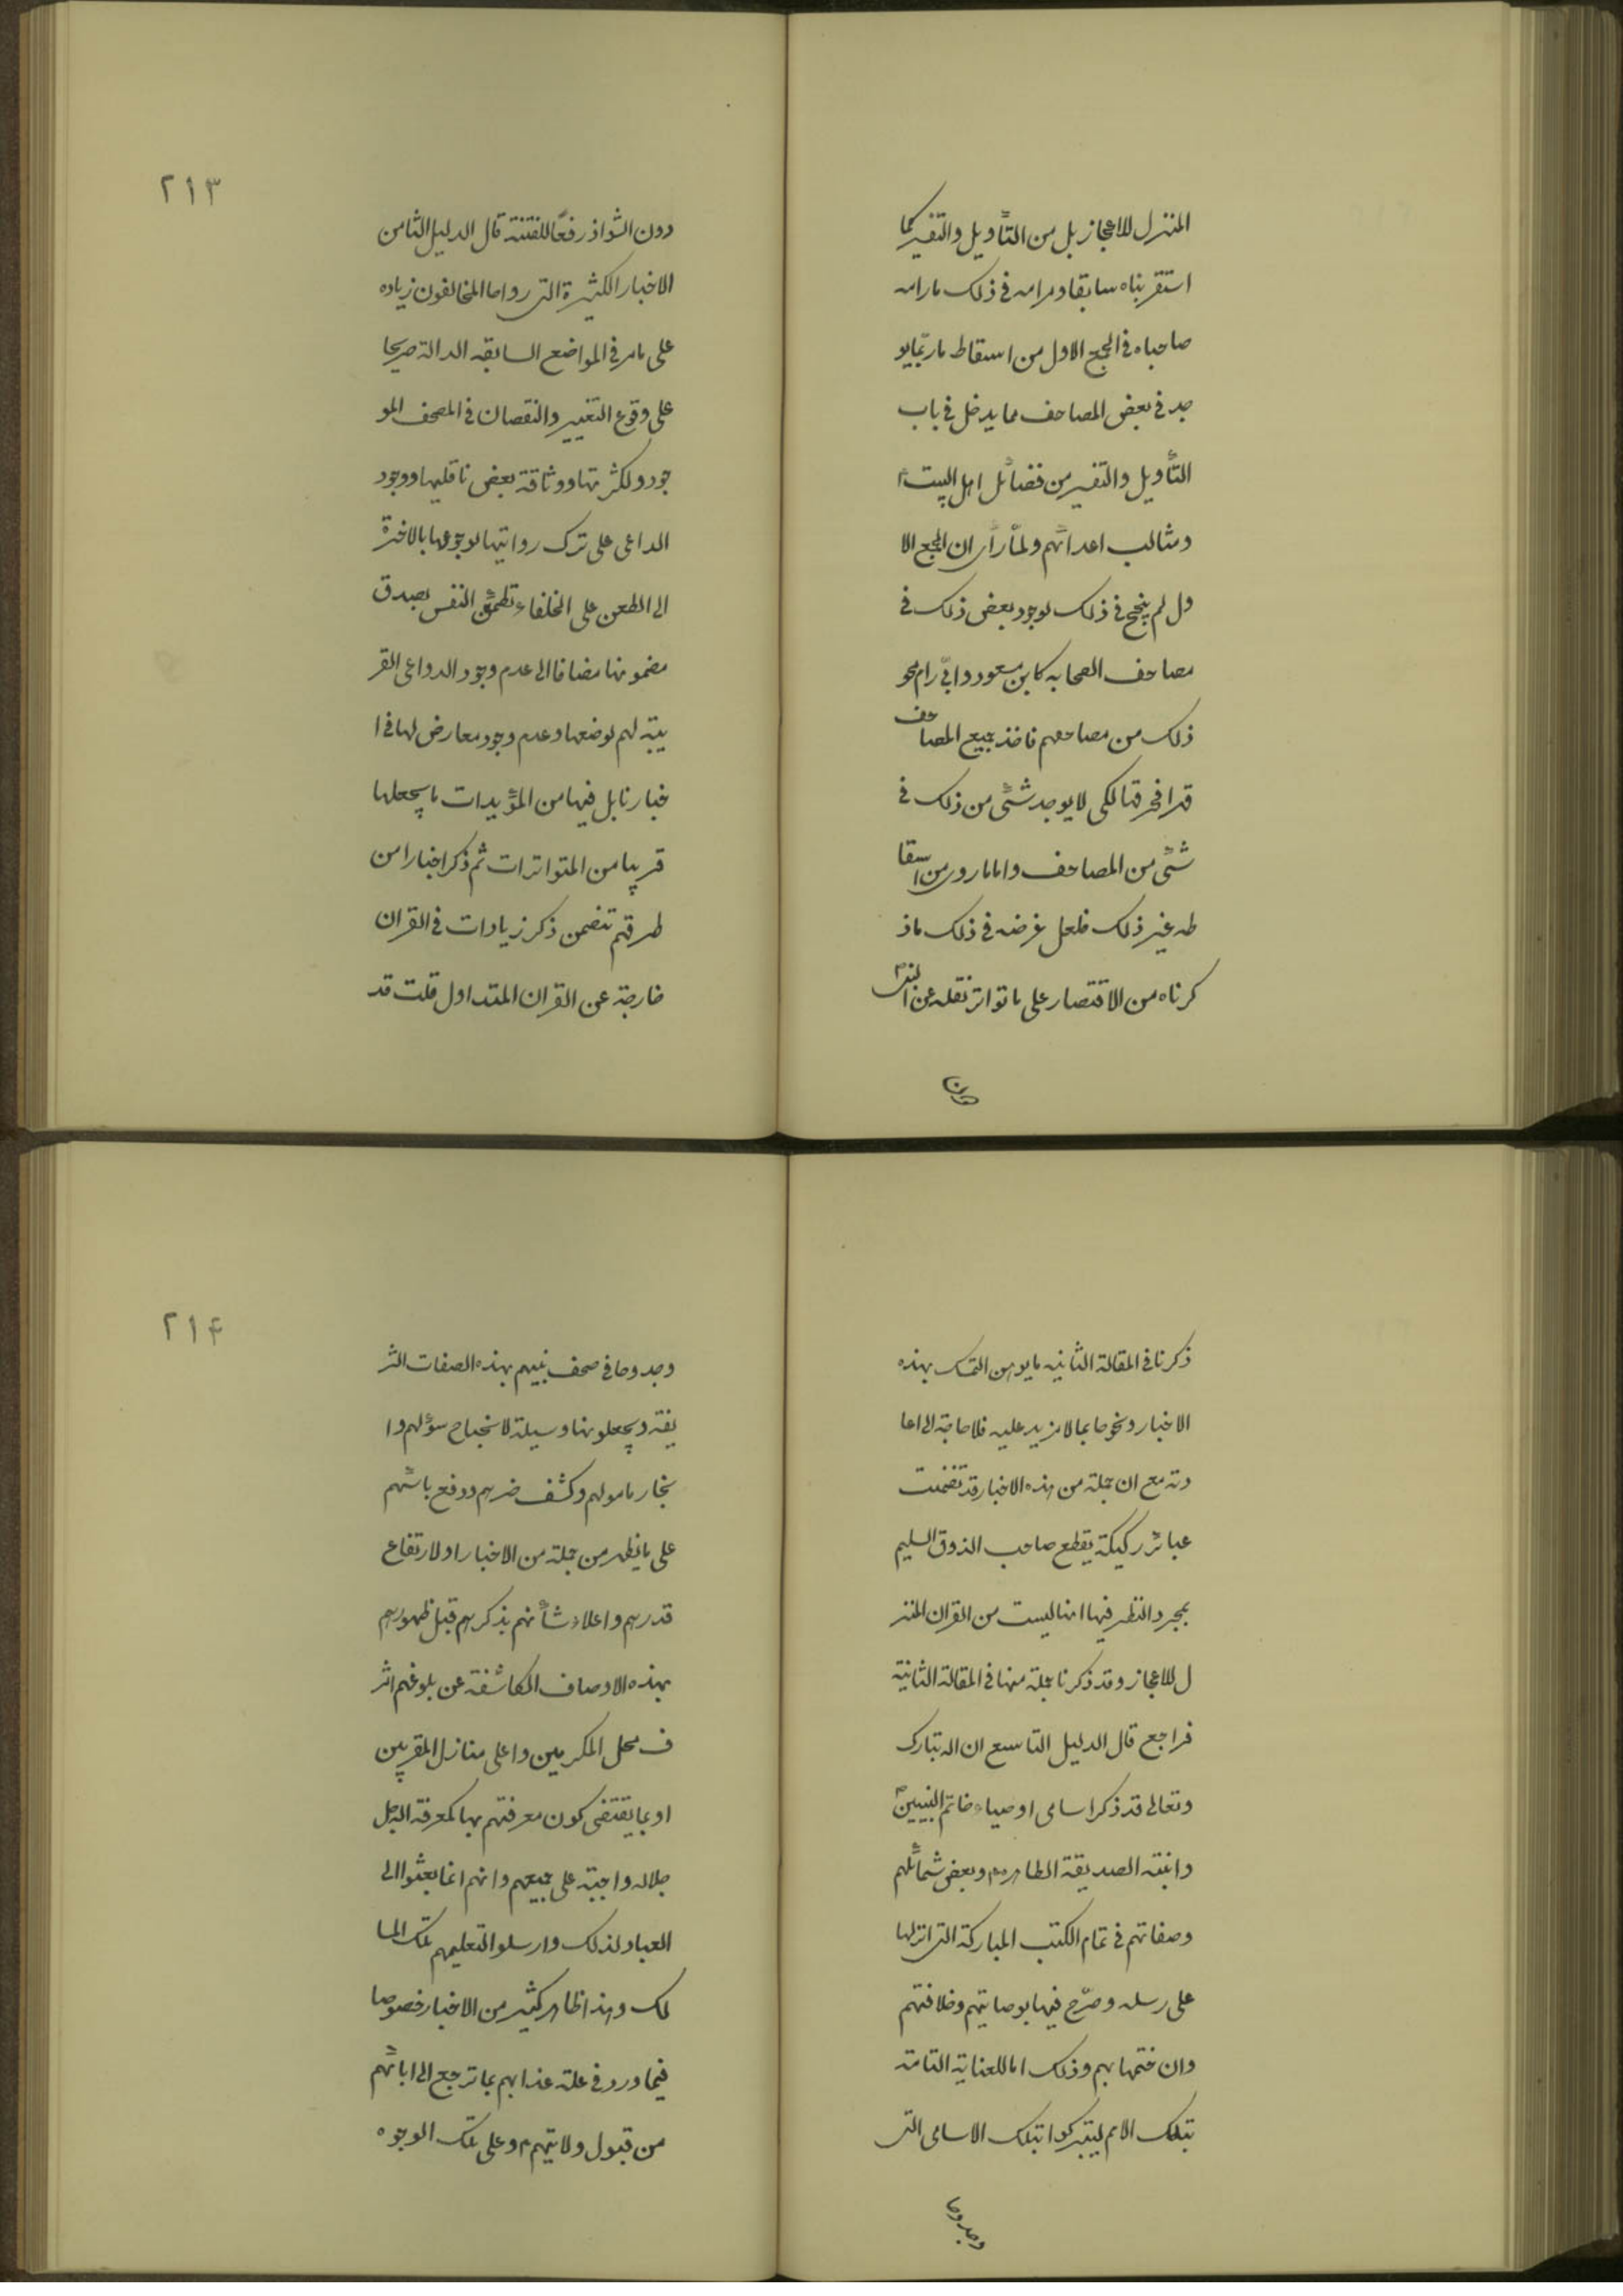 المنزل للاعجاز بل من التأويل والتفسير كما
استقربناه سابقا ومرامه فى ذلك ما رامه
صاحباه فى الجمع الاول من اسقاط ما ربّما يو
جد فى بعض المصاحف مما يدخل فى باب
التأويل والتفسير من فضائل اهل البيت ع
ومثالب اعدائهم ولمّا رأى ان الجمع الا
ول لم ينجح فى ذلك لوجود بعض ذلك فى
مصاحف الصحابه كابن مسعود وابىّ رام محو
ذلك من مصاحفهم فاخذ جميع المصاحف
قدا فحرقها لكى لا يوجد شئى من ذلك فى
شئى من المصاحف واما ما روى من اسقا
طه غير ذلك فلعل غرضه فى ذلك ما ذ
كرناه من الاقتصار على ما تواتر نقله عن النبى ص
دون
٢١٣
دون الشواذ رفعًا للفتنة قال الدليل الثامن
الاخبار الكثيرة التى رواها المخالفون زياده
على ما مر فى المواضع السابقه الدالة صريحا
على وقوع التغيير والنقصان فى المصحف المو
جود ولكثرتها ووثاقة بعض ناقليها ووجود
الداعى على ترك روايتها لرجوعها بالاخرة
الى الطعن على الخلفاء تطمئن النفس بصدق
مضمونها مضافا الى عدم وجود الدواعى القر
يبة لهم لوضعها وعدم وجود معارض لها فى ا
خبارنا بل فيها من المؤيدات ما يجعلها
قريبا من المتواترات ثم ذكر اخبارا من
طرقهم تتضمن ذكر زيادات فى القران
خارجة عن القران المتداول قلت قد
ذكرنا فى المقالة الثانيه ما يوهن التمسك بهذه
الاخبار ونحوها بما لا مزيد عليه فلا حاجة الى اعا
دته مع ان جملة من هذه الاخبار قد تضمنت
عبائر ركيكة يقطع صاحب الذوق السليم
بمجرد النظر فيها انها ليست من القران المنز
ل للاعجاز وقد ذكرنا جملة منها فى المقالة الثانية
فراجع قال الدليل التاسع ان الله تبارك
وتعالى قد ذكر اسامى اوصياء خاتم النبيين ص
وابنته الصديقة الطاهره ع وبعض شمائلهم
وصفاتهم فى تمام الكتب المباركة التى انزلها
على رسله وصرّح فيها بوصايتهم وخلافتهم
وان ختمها بهم وذلك اما للعناية التامة
بتلك الامم ليتبركوا بتلك الاسامى التى
وجدوها
٢١٤
وجدوها فى صحف نبيهم بهذه الصفات الشر
يفة ويجعلونها وسيلة لانجاح سؤلهم وا
نجاز مامولهم وكشف ضرهم ودفع بائسهم
على ما يظهر من جملة من الاخبار او لارتفاع
قدرهم واعلاء شأنهم بذكرهم قبل ظهورهم
بهذه الاوصاف الكاشفة عن بلوغهم اشر
ف محل المكرمين واعلى منازل المقربين
او بما يقتضى كون معرفتهم بها كمعرفة الله جل
جلاله واجبة على جميعهم وانهم انما بعثوا الى
العباد لذلك وارسلوا لتعليمهم تلك المسا
لك وهذا ظاهر كثير من الاخبار خصوصا
فيما ورد فى علة عذابهم بما ترجع الى ابائهم
من قبول ولايتهم ع وعلى تلك الوجوه